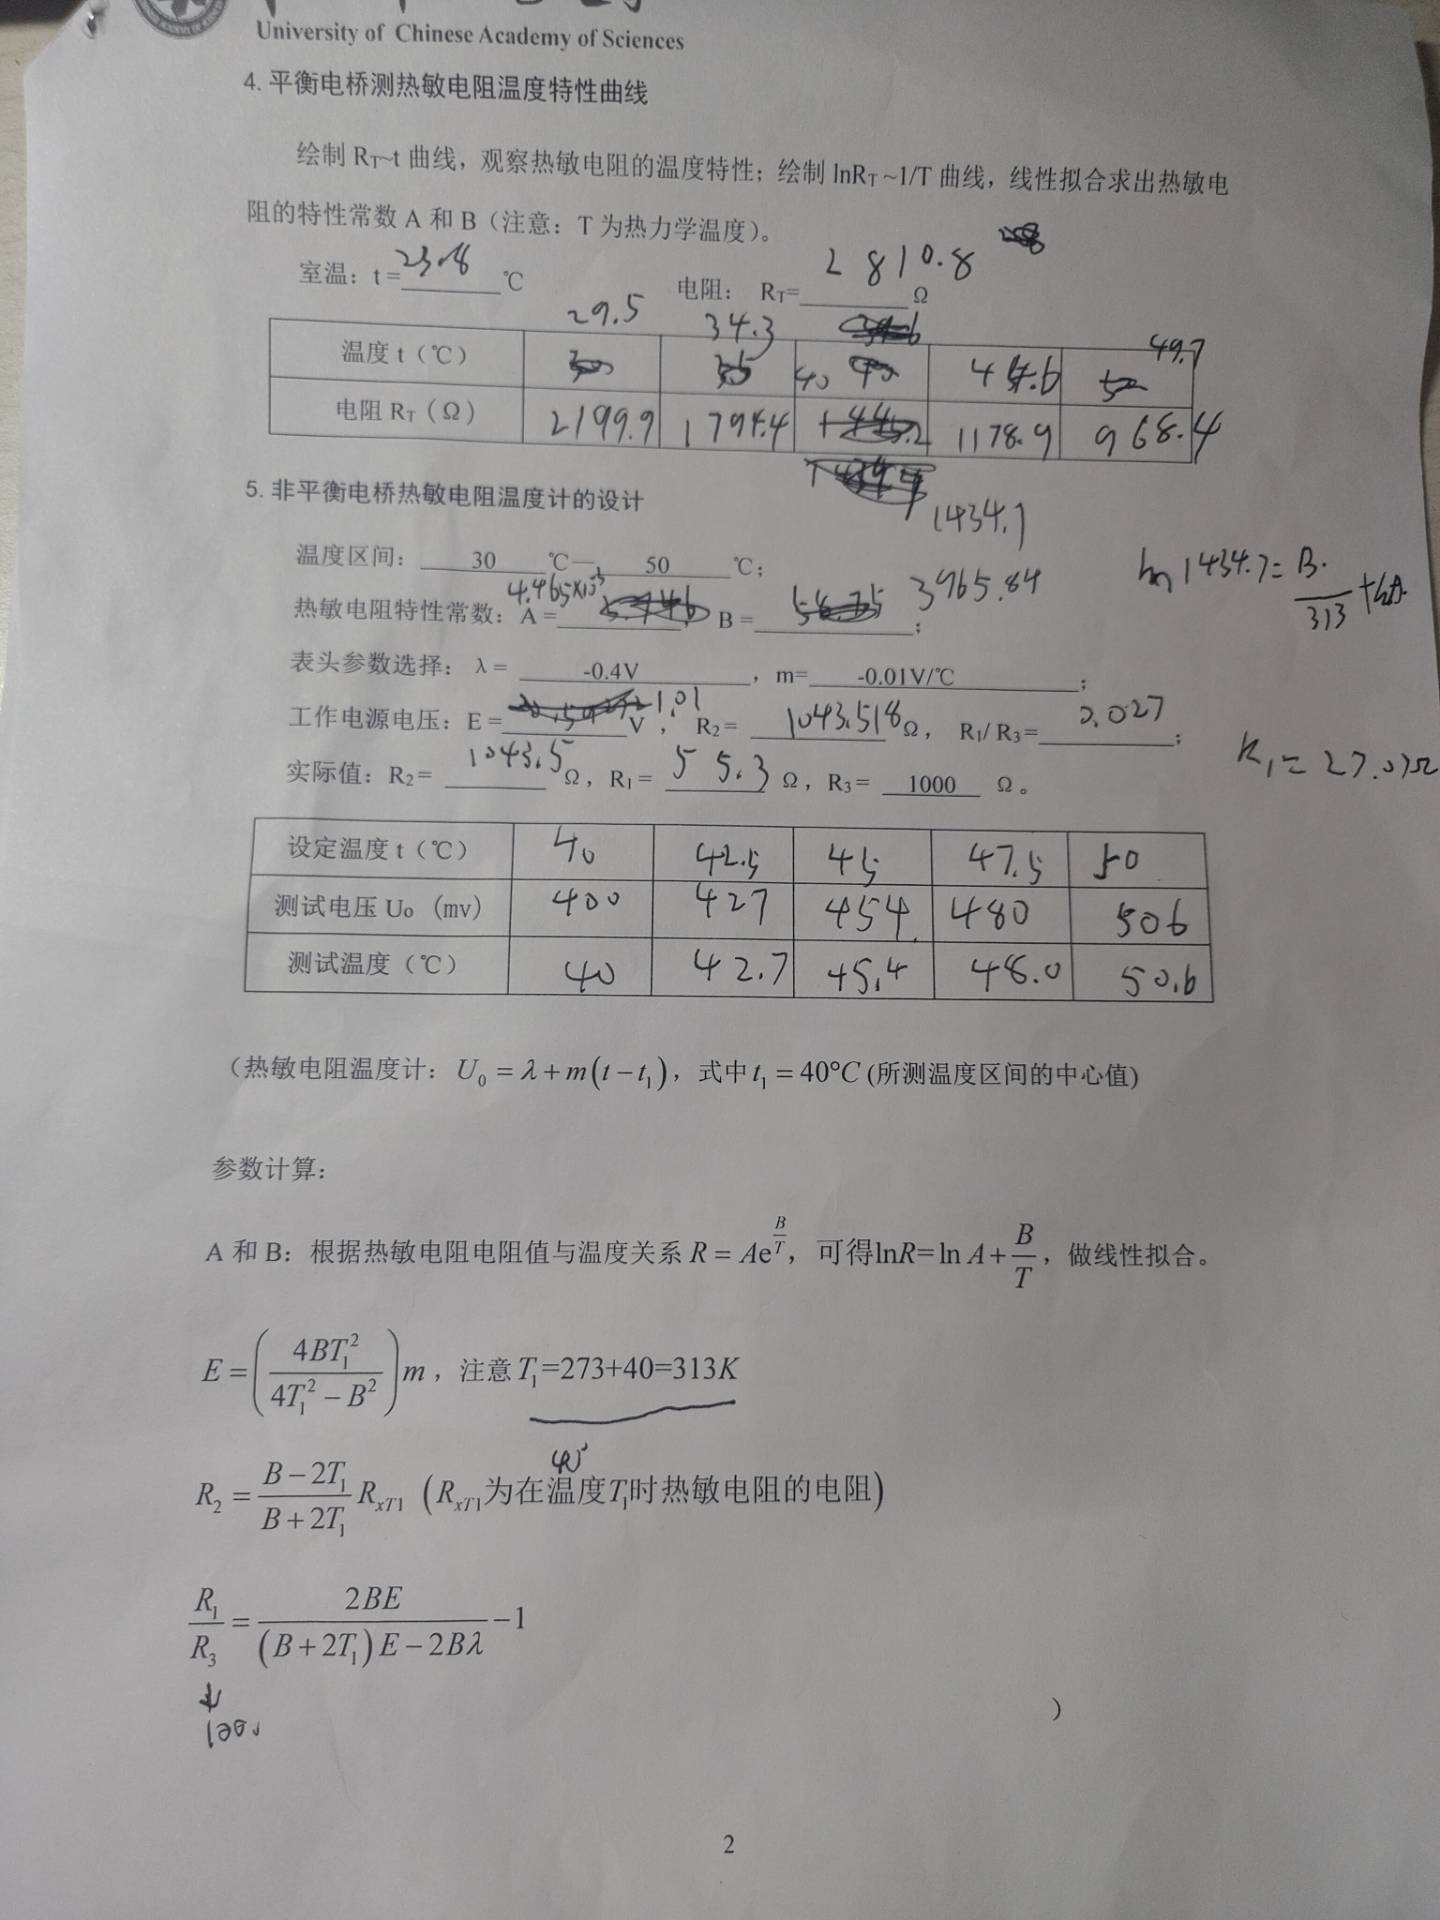 University of Chinese Academy of Sciences
4. 平衡电桥测热敏电阻温度特性曲线
绘制 R_T~t 曲线，观察热敏电阻的温度特性；绘制 lnR_T ~1/T 曲线，线性拟合求出热敏电
阻的特性常数 A 和 B（注意：T 为热力学温度）。
室温：t = 23.8 ℃ 电阻： R_T= 2810.8 Ω
29.5 34.3 49.7
温度 t（℃） 40 44.6
电阻 R_T（Ω） 2199.9 1794.4 1178.9 968.4
1434.7
5. 非平衡电桥热敏电阻温度计的设计
温度区间： 30 ℃— 50 ℃；
ln 1434.7 = B/313 + lnA
热敏电阻特性常数：A = 4.465×10⁻³ B = 3965.84 ；
表头参数选择： λ = -0.4V ，m= -0.01V/℃ ；
工作电源电压：E = 1.01 V ， R₂ = 1043.518 Ω， R₁/ R₃= 0.027 ；
R₁ = 27.07Ω
实际值：R₂ = 1043.5 Ω，R₁ = 55.3 Ω，R₃ = 1000 Ω。
设定温度 t（℃） 40 42.5 45 47.5 50
测试电压 U₀ (mv) 400 427 454 480 506
测试温度（℃） 40 42.7 45.4 48.0 50.6
（热敏电阻温度计：U₀ = λ + m(t − t₁)，式中 t₁ = 40°C (所测温度区间的中心值)
参数计算：
A 和 B：根据热敏电阻电阻值与温度关系 R = Ae^(B/T)，可得lnR= ln A + B/T，做线性拟合。
E = (4BT₁² / (4T₁² − B²)) m，注意 T₁=273+40=313K
40°
R₂ = (B − 2T₁)/(B + 2T₁) R_xT1 (R_xT1为在温度T₁时热敏电阻的电阻)
R₁/R₃ = 2BE/((B + 2T₁)E − 2Bλ) − 1
↓
1000
）
2